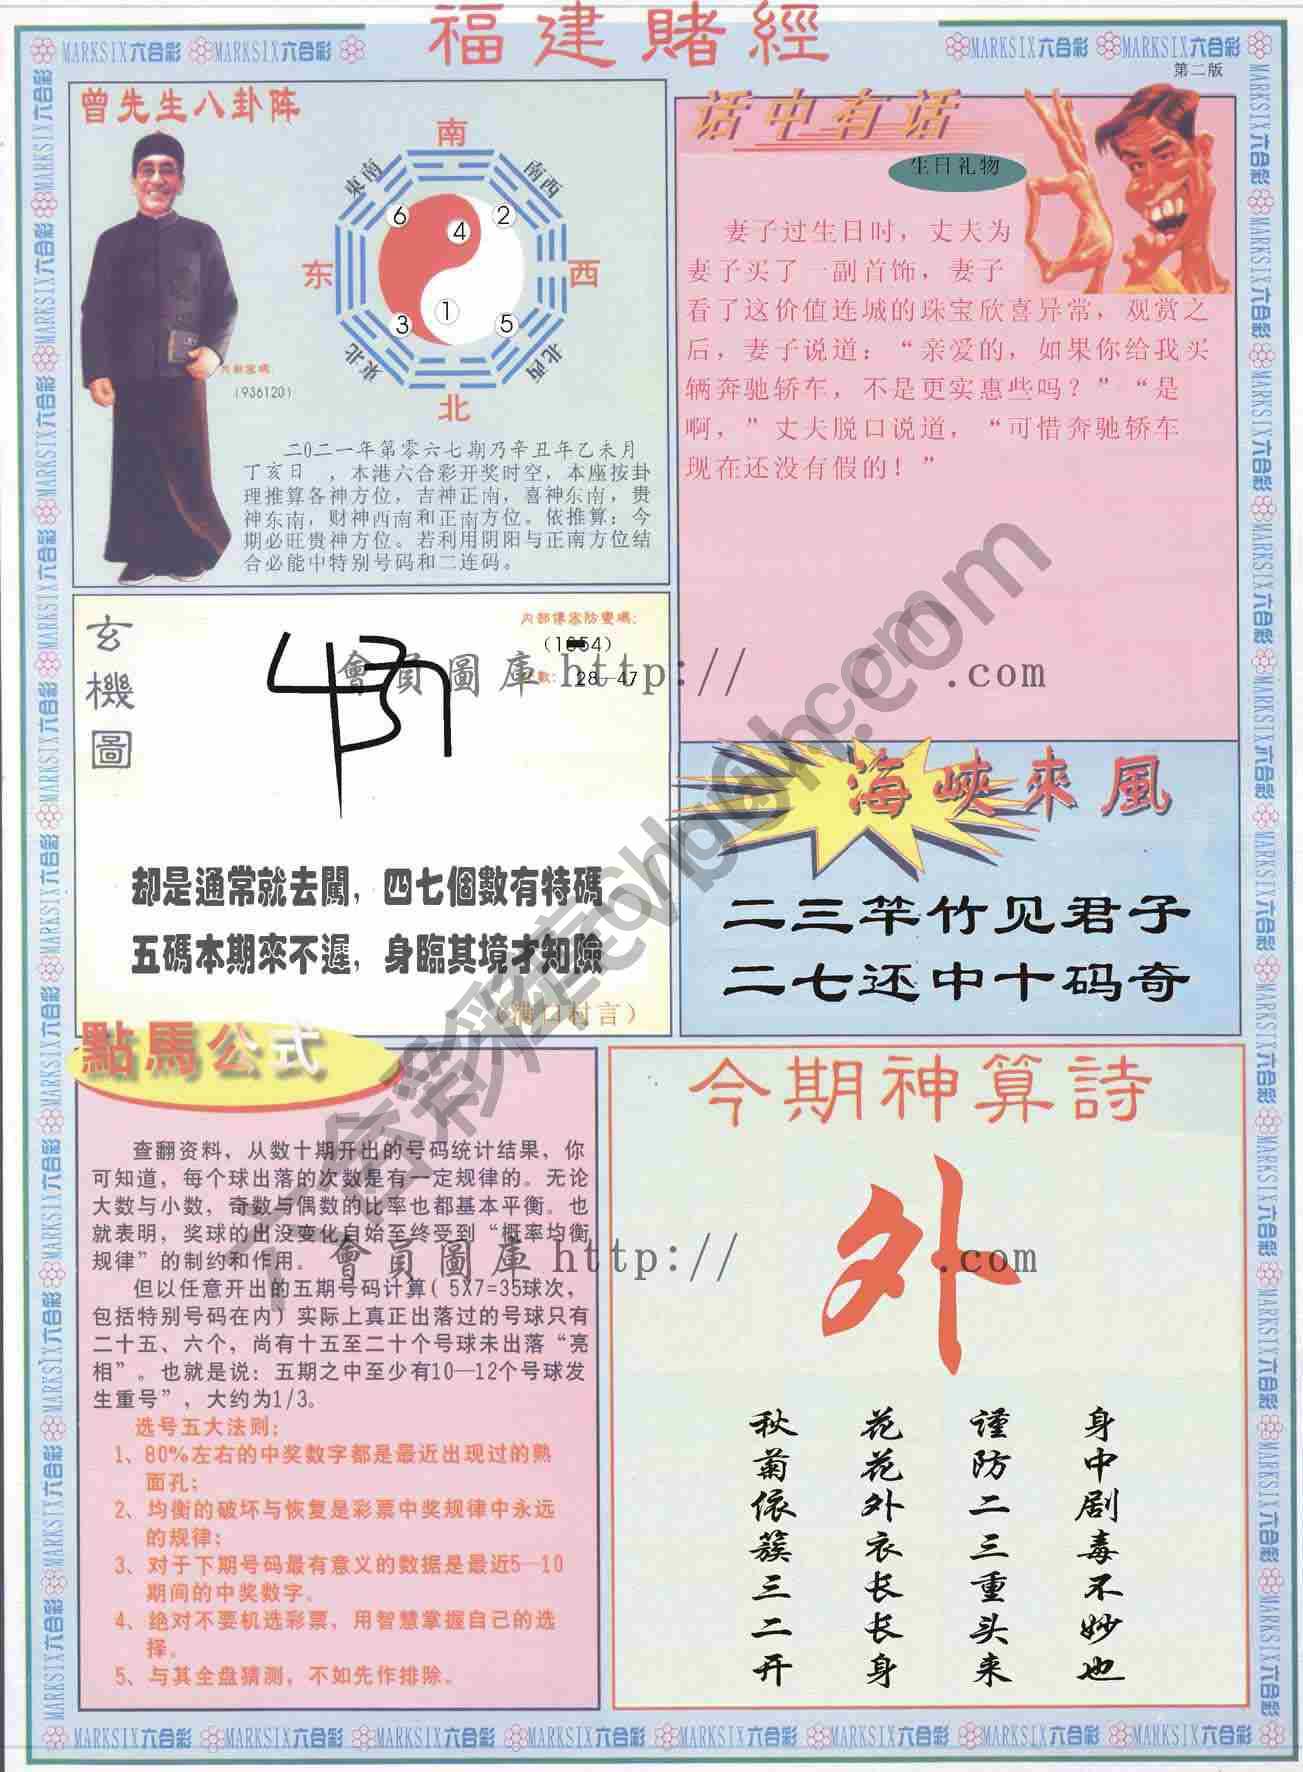 福建賭經
MARKSIX六合彩 MARKSIX六合彩
MARKSIX六合彩 MARKSIX六合彩
第二版
曾先生八卦阵
南
東南
南西
6
4
2
东
西
3
1
5
東北
北西
北
(936120)
二0二一年第零六七期乃辛丑年乙未月
丁亥日 ,本港六合彩开奖时空,本座按卦
理推算各神方位,吉神正南,喜神东南,贵
神东南,财神西南和正南方位。依推算:今
期必旺贵神方位。若利用阴阳与正南方位结
合必能中特别号码和二连码。
话中有话
生日礼物
妻子过生日时,丈夫为
妻子买了一副首饰,妻子
看了这价值连城的珠宝欣喜异常,观赏之
后,妻子说道:“亲爱的,如果你给我买
辆奔驰轿车,不是更实惠些吗?”“是
啊,”丈夫脱口说道,“可惜奔驰轿车
现在还没有假的!”
玄機圖
28—47
會員圖庫 http:// .com
却是通常就去闖,四七個數有特碼
五碼本期來不遲,身臨其境才知險
海峽來風
二三竿竹见君子
二七还中十码奇
點馬公式
查翻资料,从数十期开出的号码统计结果,你
可知道,每个球出落的次数是有一定规律的。无论
大数与小数,奇数与偶数的比率也都基本平衡。也
就表明,奖球的出没变化自始至终受到“概率均衡
规律”的制约和作用。
但以任意开出的五期号码计算(5X7=35球次,
包括特别号码在内)实际上真正出落过的号球只有
二十五、六个,尚有十五至二十个号球未出落“亮
相”。也就是说:五期之中至少有10—12个号球发
生重号”,大约为1/3。
选号五大法则:
1、80%左右的中奖数字都是最近出现过的熟
面孔;
2、均衡的破坏与恢复是彩票中奖规律中永远
的规律;
3、对于下期号码最有意义的数据是最近5—10
期间的中奖数字。
4、绝对不要机选彩票,用智慧掌握自己的选
择。
5、与其全盘猜测,不如先作排除。
會員圖庫 http:// .com
今期神算詩
外
身中剧毒不妙也
谨防二三重头来
花花外衣长长身
秋菊依簇三二开
MARKSIX六合彩 MARKSIX六合彩 MARKSIX六合彩 MARKSIX六合彩 MARKSIX六合彩 MARKSIX六合彩 MARKSIX六合彩 MARKSIX六合彩